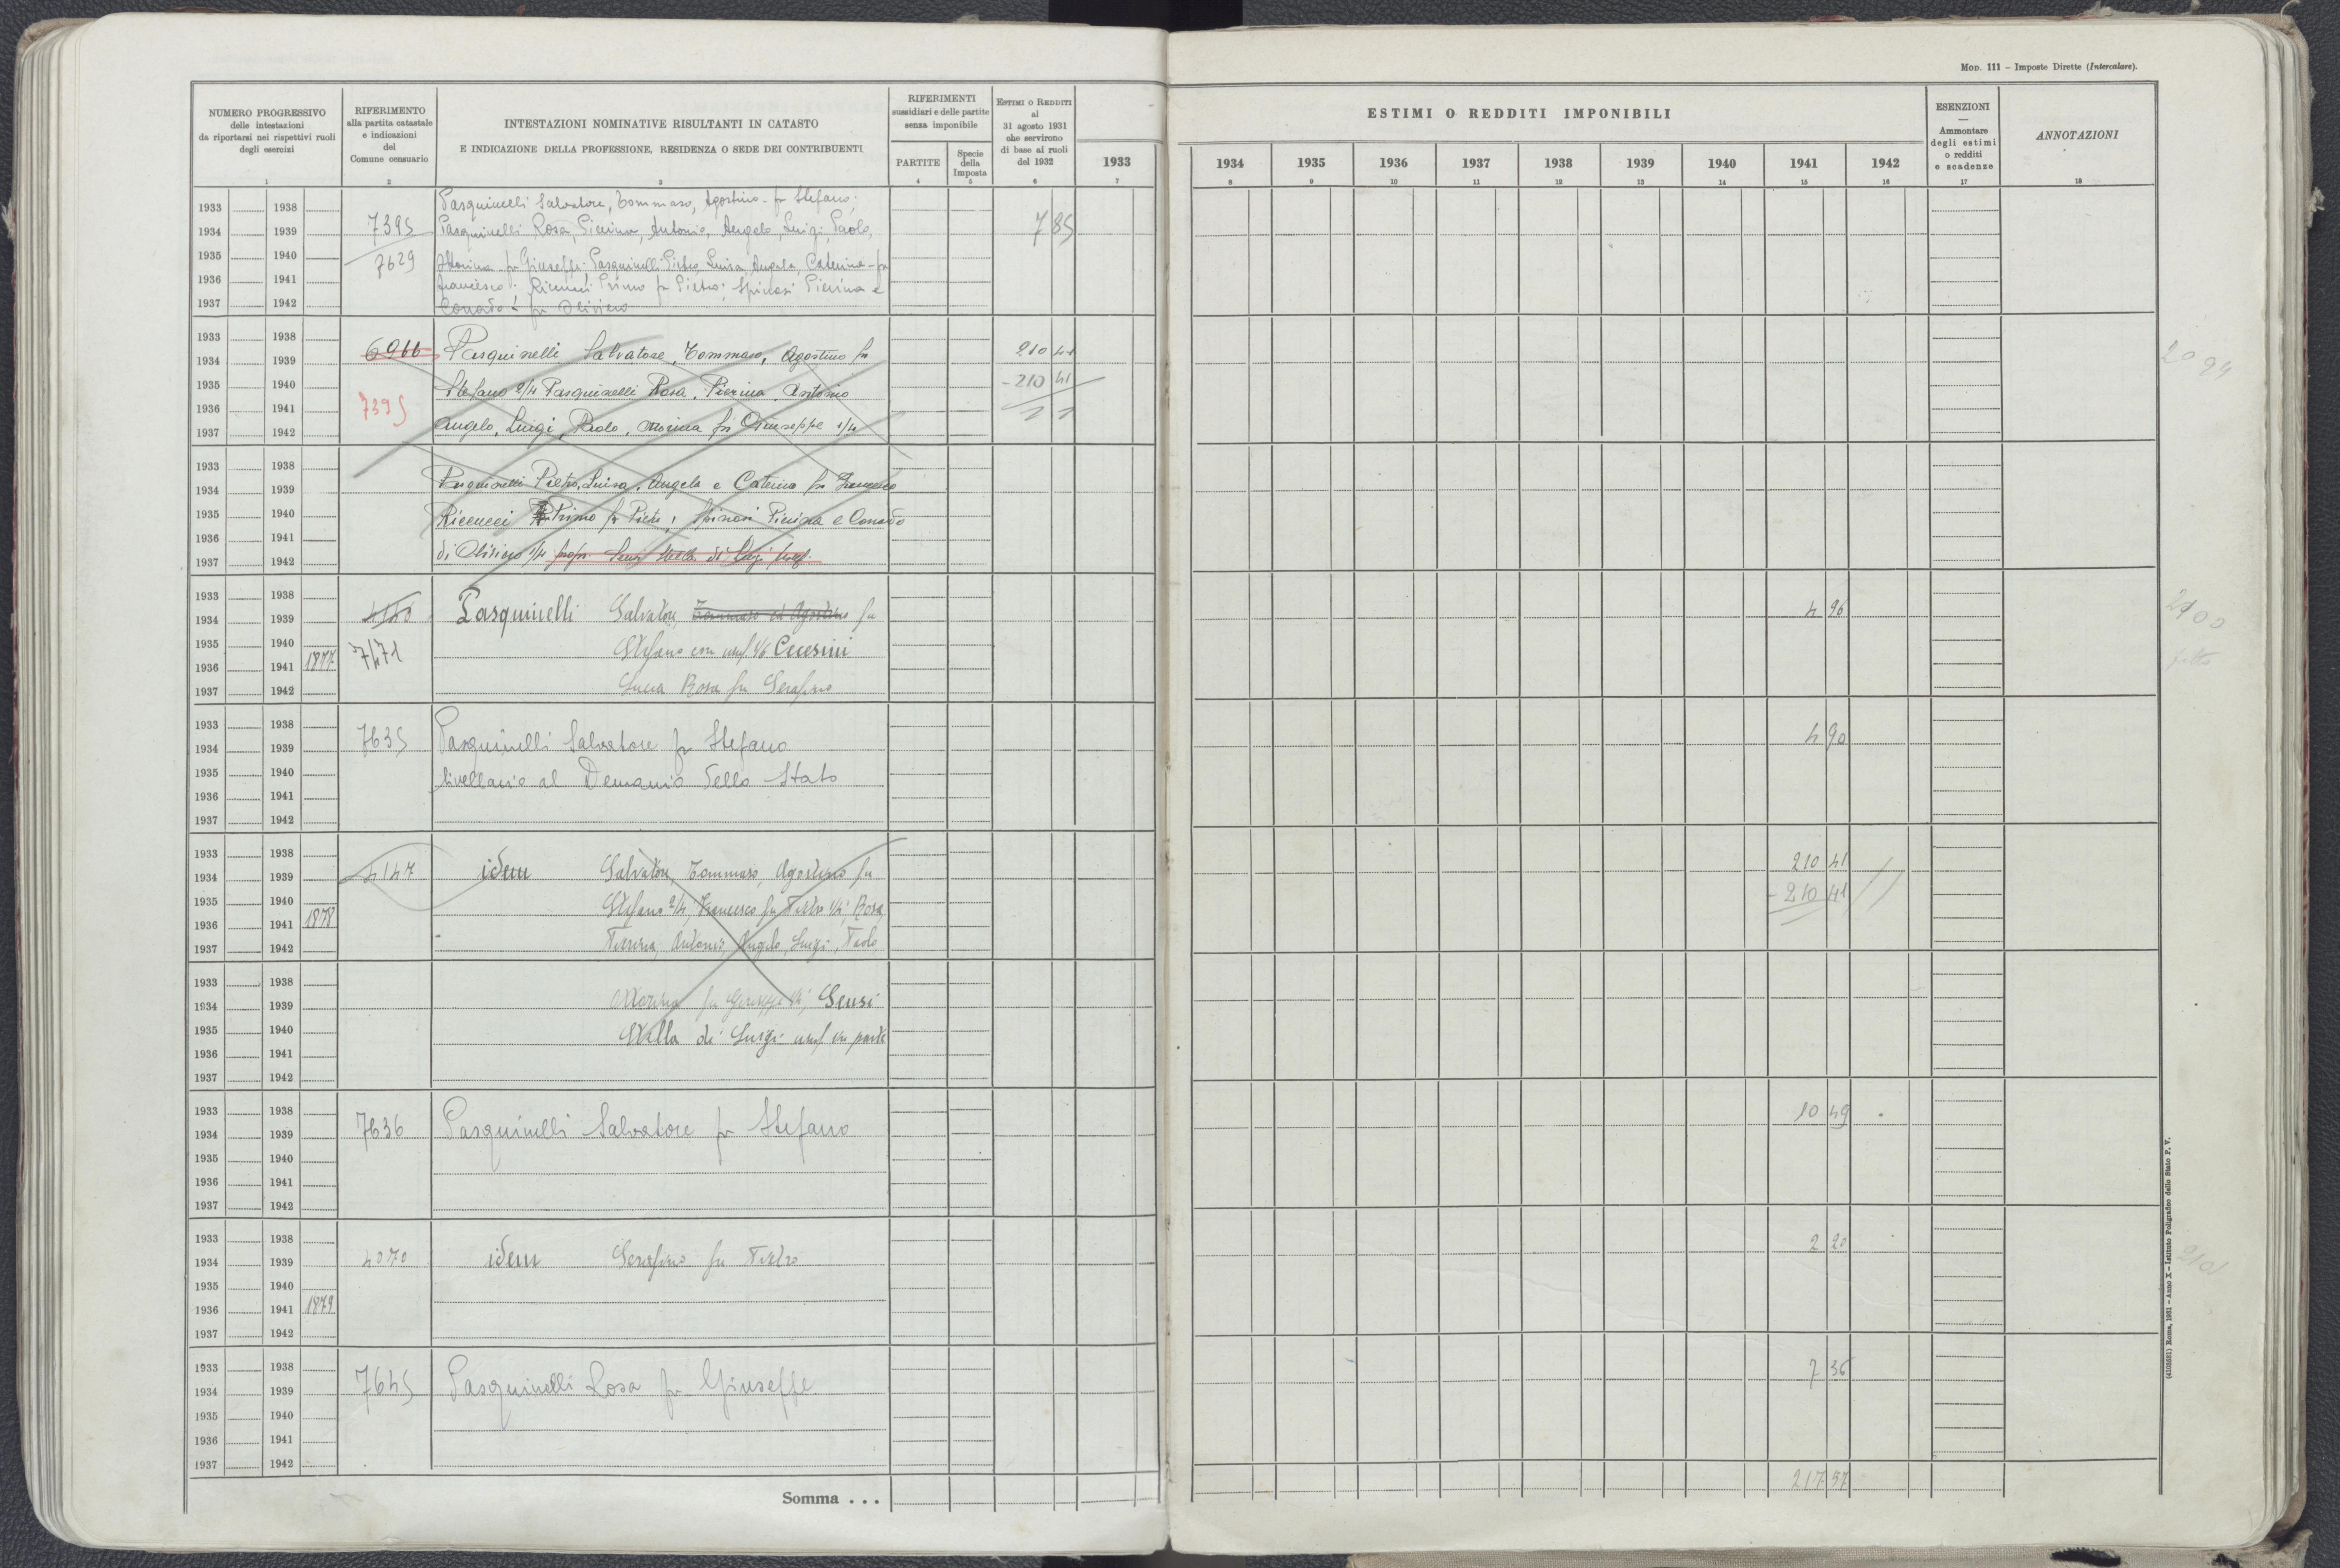 MOD. 111 – Imposte Dirette (Intercalare).
NUMERO PROGRESSIVO
delle intestazioni
da riportarsi nei rispettivi ruoli
degli esercizi
1
RIFERIMENTO
alla partita catastale
e indicazioni
del
Comune censuario
2
INTESTAZIONI NOMINATIVE RISULTANTI IN CATASTO
E INDICAZIONE DELLA PROFESSIONE, RESIDENZA O SEDE DEI CONTRIBUENTI
3
RIFERIMENTI
sussidiari e delle partite
senza imponibile
PARTITE
4
Specie
della
Imposta
5
ESTIMI O REDDITI
al
31 agosto 1931
che servirono
di base ai ruoli
del 1932
6
1933
7
ESTIMI O REDDITI IMPONIBILI
1934 1935 1936 1937 1938 1939 1940 1941 1942
8 9 10 11 12 13 14 15 16
ESENZIONI
—
Ammontare
degli estimi
o redditi
e scadenze
17
ANNOTAZIONI
18
Pasquinelli Salvatore, Tommaso, Agostino fu Stefano;
1933 1938
1934 1939 7395 Pasquinelli Rosa, Pierina, Antonio, Angelo, Luigi, Paolo, 7 85
1935 1940 7629 fu Giuseppe; Pasquinelli Pietro, Luisa, Angela, Caterina fu
1936 1941 Francesco; Riccucci Primo fu Pietro; Spinosi Pierina e
1937 1942 Corrado fu Oliviero
1933 1938
1934 1939 6966 Pasquinelli Salvatore, Tommaso, Agostino fu 210 41
1935 1940 Stefano 2/4 Pasquinelli Rosa, Pierina, Antonio - 210 41
1936 1941 7395
1937 1942 Angelo, Luigi, Paolo, fu Giuseppe 1/4
1933 1938
1934 1939 Pasquinelli Pietro, Luisa, Angela e Caterina fu Francesco
1935 1940 Riccucci Primo fu Pietro, Spinosi Pierina e Corrado
1936 1941
1937 1942 di Olivieo 1/4
1933 1938
1934 1939 4140 Pasquinelli Salvatore, Tommaso ed Agostino fu 4 96 2100
1935 1940 7471 Stefano con usuf. 1/6 Cecesini
1936 1941 1877 fatto
1937 1942 Rosa fu Serafino
1933 1938
1934 1939 7635 Pasquinelli Salvatore fu Stefano 4 90
1935 1940 livellario al Demanio dello Stato
1936 1941
1937 1942
1933 1938
1934 1939 4147 idem Salvatore, Tommaso, Agostino fu 210 41
1935 1940 Stefano 2/4, Francesco fu Pietro 1/4; Rosa, - 210 41
1936 1941 1878
1937 1942 Pierina, Antonio, Angelo, Luigi, Paolo,
1933 1938
1934 1939 fu Giuseppe 1/4; Sensi
1935 1940 Stella di Luigi usuf in parte
1936 1941
1937 1942
1933 1938 10 49
1934 1939 7636 Pasquinelli Salvatore fu Stefano
1935 1940
1936 1941
1937 1942
1933 1938
1934 1939 4070 idem Serafino fu Pietro 2 20
1935 1940
1936 1941 1879
1937 1942
1933 1938
1934 1939 7645 Pasquinelli Rosa fu Giuseppe 7 36
1935 1940
1936 1941
1937 1942
Somma . . . 217 57
(4103581) Roma, 1931 – Anno X – Istituto Poligrafico dello Stato P. V.